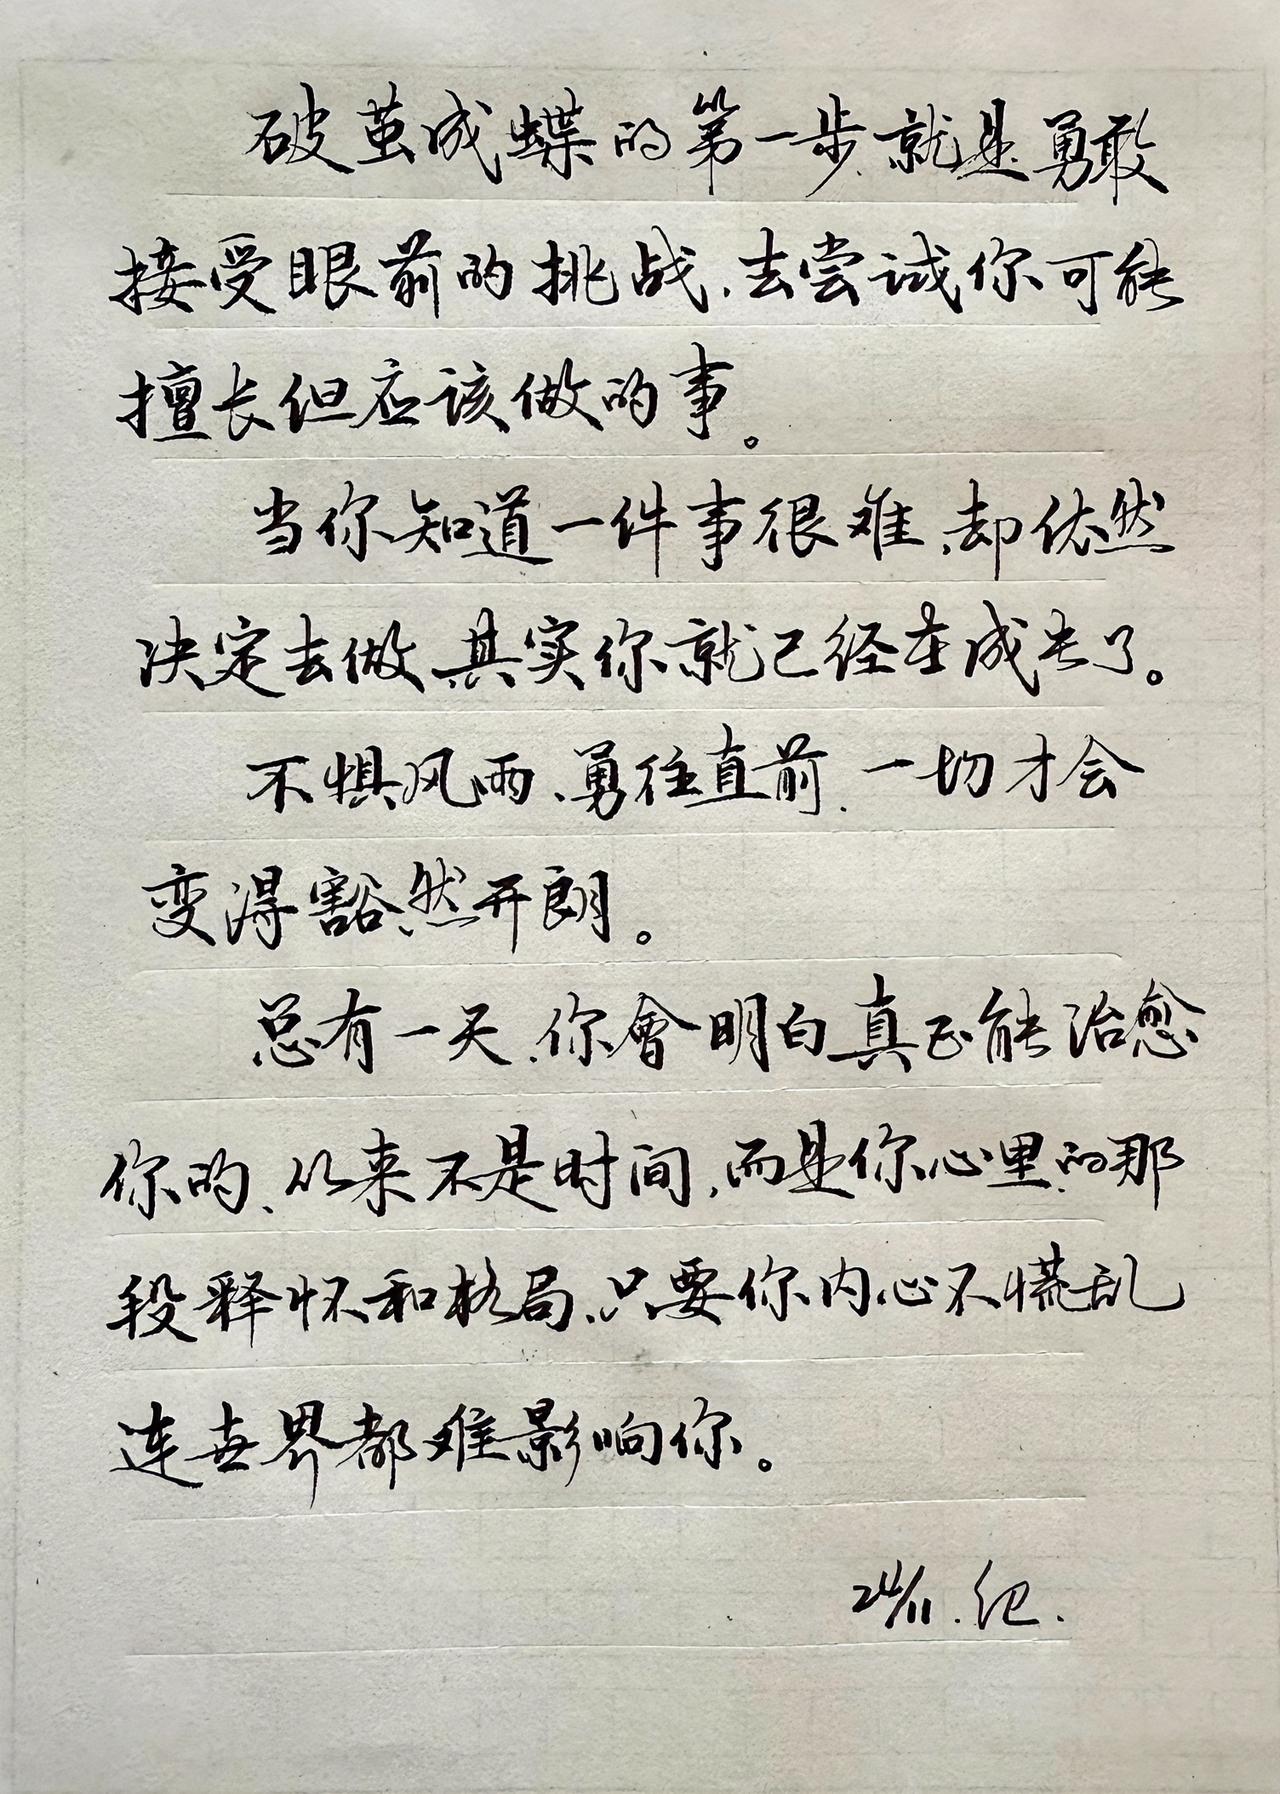 破茧成蝶的第一步、就是勇敢
接受眼前的挑战、去尝试你可能
擅长但应该做的事。
当你知道一件事很难、却依然
决定去做、其实你就已经在成长了。
不惧风雨、勇往直前、一切才会
变得豁然开朗。
总有一天、你會明白真正能治愈
你的、从来不是时间，而是你心里的那
段释怀和格局、只要你内心不慌乱
连世界都难影响你。
24/11.纪.